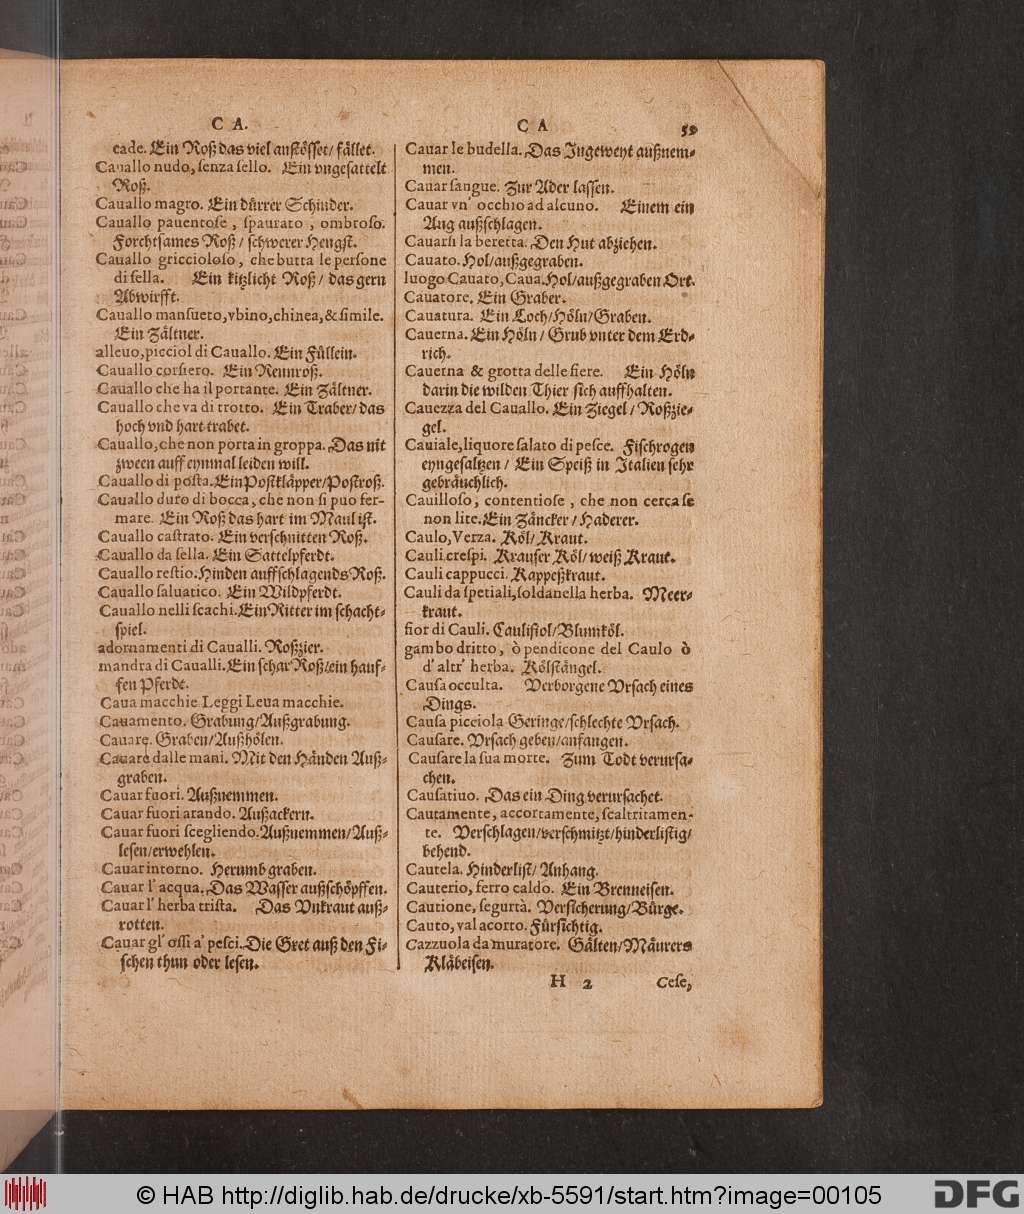 C A.
cade. Ein Roß das viel anstösset/ fället.
Cauallo nudo, ſenza ſello. Ein vngesattelt
Roß.
Cauallo magro. Ein dürrer Schinder.
Cauallo pauentoſe, ſpaurato, ombroſo.
Forchtsames Roß/ schwerer Hengst.
Cauallo griccioloſo, che butta le perſone
di ſella. Ein kitzlicht Roß/ das gern
Abwirfft.
Cauallo manſueto, vbino, chinea, & ſimile.
Ein Zältner.
alleuo, picciol di Cauallo. Ein Füllein.
Cauallo corſiero. Ein Rennroß.
Cauallo che ha il portante. Ein Zältner.
Cauallo che va di trotto. Ein Traber/ das
hoch vnd hart trabet.
Cauallo, che non porta in groppa. Das nit
zween auff eynmal leiden will.
Cauallo di poſta. Ein Postkläpper/Postroß.
Cauallo duro di bocca, che non ſi puo fer-
mare. Ein Roß das hart im Maul ist.
Cauallo caſtrato. Ein verschnitten Roß.
Cauallo da ſella. Ein Sattelpferdt.
Cauallo reſtio. Hinden auffschlagends Roß.
Cauallo ſaluatico. Ein Wildpferdt.
Cauallo nelli ſcachi. Ein Ritter im schacht-
spiel.
adornamenti di Caualli. Roßzier.
mandra di Caualli. Ein schar Roß/ein hauf-
fen Pferdt.
Caua macchie Leggi Leua macchie.
Cauamento. Grabung/Außgrabung.
Cauare. Graben/Außhölen.
Cauare dalle mani. Mit den Händen Auß-
graben.
Cauar fuori. Außnemmen.
Cauar fuori arando. Außackern.
Cauar fuori ſcegliendo. Außnemmen/Auß-
lesen/erwehlen.
Cauar intorno. Herumb graben.
Cauar l' acqua. Das Wasser außschöpffen.
Cauar l' herba triſta. Das Vnkraut auß-
rotten.
Cauar gl' oſſi a' peſci. Die Gret auß den Fi-
schen thun oder lesen.
C A 59
Cauar le budella. Das Ingeweyt außnem-
men.
Cauar ſangue. Zur Ader lassen.
Cauar vn' occhio ad alcuno. Einem ein
Aug außschlagen.
Cauarſi la beretta. Den Hut abziehen.
Cauato. Hol/außgegraben.
luogo Cauato, Caua. Hol/außgegraben Ort.
Cauatore. Ein Graber.
Cauatura. Ein Loch/Höln/Graben.
Cauerna. Ein Höln/ Grub vnter dem Erd-
rich.
Cauerna & grotta delle fiere. Ein Höln
darin die wilden Thier sich auffhalten.
Cauezza del Cauallo. Ein Ziegel/ Roßzie-
gel.
Cauiale, liquore ſalato di peſce. Fischrogen
eyngesaltzen/ Ein Speiß in Italien sehr
gebräuchlich.
Cauilloſo, contentioſe, che non cerca ſe
non lite. Ein Zäncker/ Haderer.
Caulo, Verza. Köl/ Kraut.
Cauli creſpi. Krauser Köl/ weiß Kraut.
Cauli cappucci. Kappeßkraut.
Cauli da ſpetiali, ſoldanella herba. Meer-
kraut.
fior di Cauli. Caulifiol/Blumköl.
gambo dritto, ò pendicone del Caulo ò
d' altr' herba. Kölstängel.
Cauſa occulta. Verborgene Vrsach eines
Dings.
Cauſa picciola Geringe/schlechte Vrsach.
Cauſare. Vrsach geben/anfangen.
Cauſare la ſua morte. Zum Todt verursa-
chen.
Cauſatiuo. Das ein Ding verursachet.
Cautamente, accortamente, ſcaltritamen-
te. Verschlagen/verschmitzt/hinderlistig/
behend.
Cautela. Hinderlist/ Anhang.
Cauterio, ferro caldo. Ein Brenneisen.
Cautione, ſegurtà. Versicherung/Bürge.
Cauto, val acorto. Fürsichtig.
Cazzuola da muratore. Gälten/Mäurers
Kläbeisen.
H 2 Ceſe,
© HAB http://diglib.hab.de/drucke/xb-5591/start.htm?image=00105
DFG